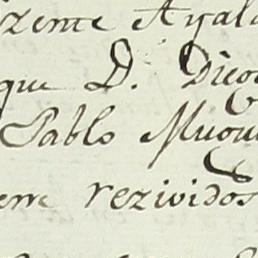 zente Ayala
que D. Diego
Pablo Muou
eme rezividos